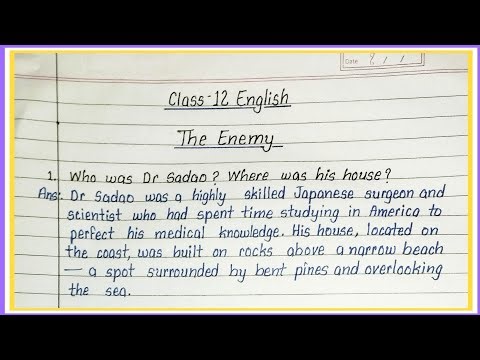 Date
Class-12 English
The Enemy
1. Who was Dr Sadao? Where was his house?
Ans: Dr Sadao was a highly skilled Japanese surgeon and
scientist who had spent time studying in America to
perfect his medical knowledge. His house, located on
the coast, was built on rocks above a narrow beach
— a spot surrounded by bent pines and overlooking
the sea.